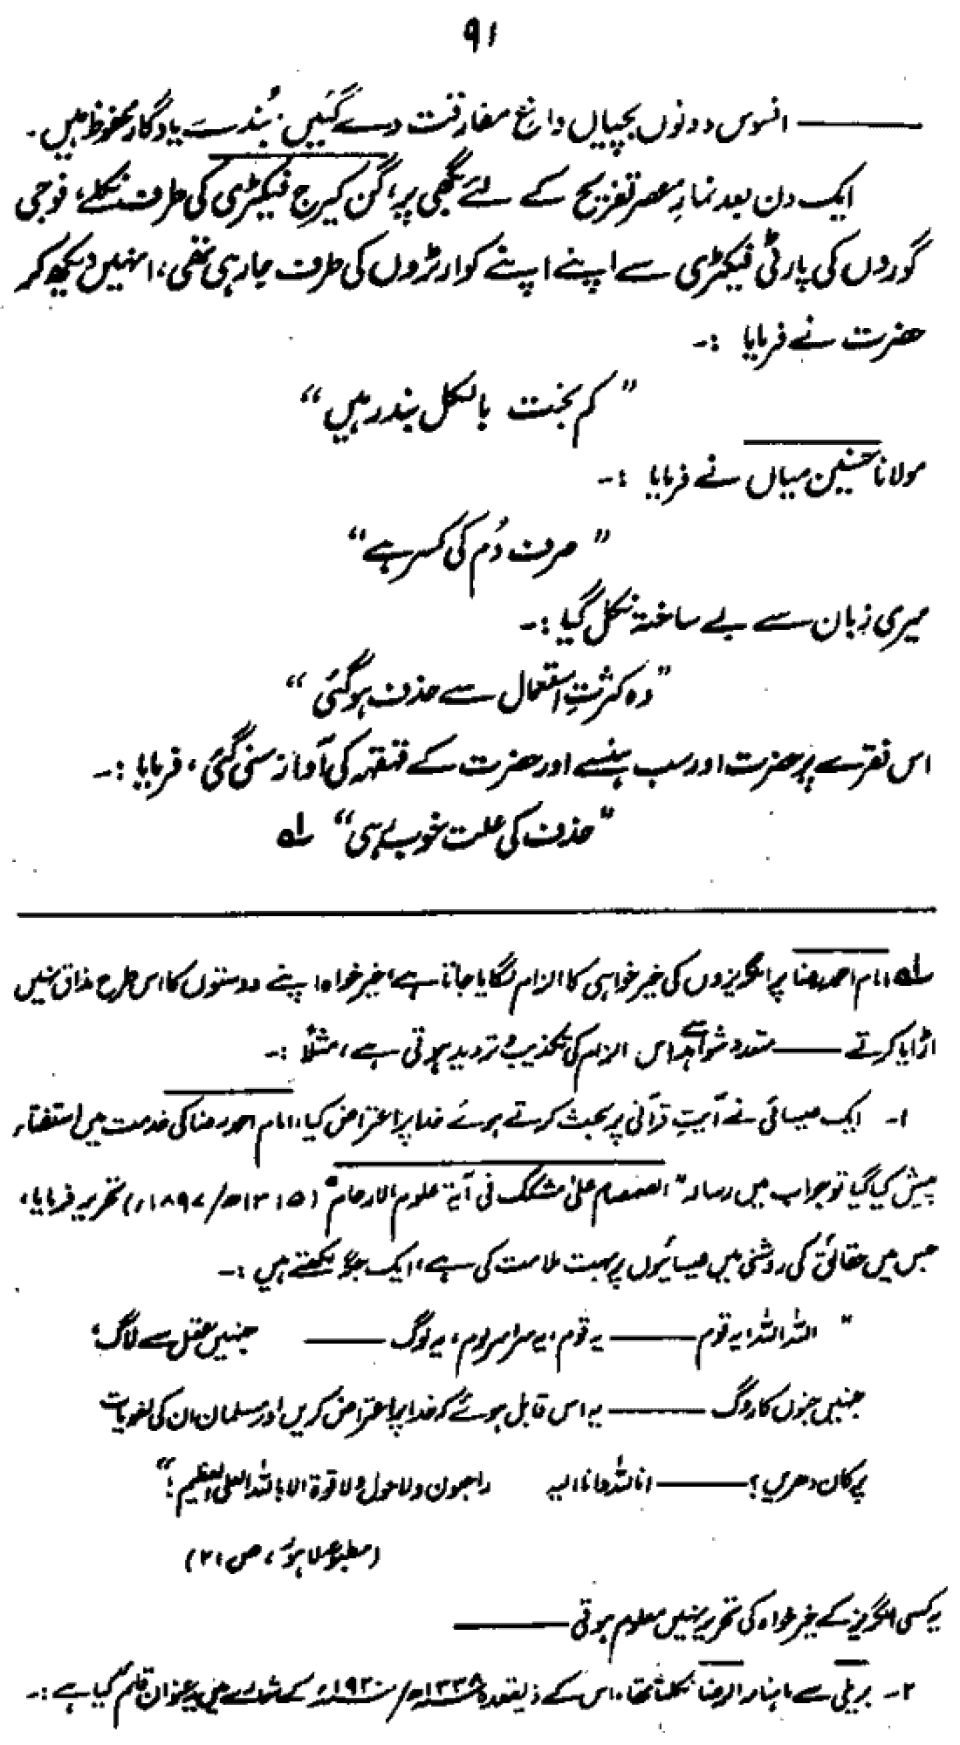 ۹۱
——— افسوس دونوں بچیاں داغِ مفارقت دے گئیں، بُندے یادگار محفوظ ہیں۔
ایک دن بعد نمازِ عصر تفریح کے لئے بگھی پر، گن کیرج فیکٹری کی طرف نکلے، فوجی
گوروں کی پارٹی فیکٹری سے اپنے اپنے کوارٹروں کی طرف جارہی تھی، انہیں دیکھ کر
حضرت نے فرمایا :-
" کم بخت بالکل بندر ہیں "
مولانا حسنین میاں نے فرمایا :-
" صرف دُم کی کسر ہے "
میری زبان سے بے ساختہ نکل گیا :-
" وہ کثرتِ استعمال سے حذف ہوگئی "
اس فقرے پر حضرت اور سب ہنسے اور حضرت کے قہقہہ کی آواز سنی گئی، فرمایا :-
" حذف کی علت خوب رہی " ؎۱
؎۱ امام احمد رضا پر انگریزوں کی خیر خواہی کا الزام لگایا جاتا ہے، خیر خواہ اپنے دوستوں کا اس طرح مذاق نہیں
اڑایا کرتے —— متعدد شواہد سے اس الزام کی تکذیب و تردید ہوتی ہے، مثلاً :-
۱- ایک عیسائی نے آیتِ قرآنی پر بحث کرتے ہوئے خدا پر اعتراض کیا، امام احمد رضا کی خدمت میں استفتاء
پیش کیا گیا تو جواب میں رسالہ "الصمصام علیٰ مشکک فی آیۃ علوم الارحام" (۱۳۱۵ھ/۱۸۹۷ء) تحریر فرمایا،
جس میں حقائق کی روشنی میں عیسائیوں پر بہت ملامت کی ہے، ایک جگہ لکھتے ہیں :-
" اللہ اللہ یہ قوم —— یہ قوم، یہ سراسر لوم، یہ لوگ —— جنہیں عقل سے لاگ،
جنہیں جنوں کا روگ —— یہ اس قابل ہوئے کہ خدا پر اعتراض کریں اور مسلمان ان کی لغویات
پر کان دھریں؟ —— انا للہ وانا الیہ راجعون ولا حول ولا قوۃ الا باللہ العلی العظیم؛"
(مطبوعہ لاہور، ص ۲۱)
یہ کسی انگریز کے خیر خواہ کی تحریر نہیں معلوم ہوتی ———
۲- بریلی سے ماہنامہ الرضا نکلتا تھا، اس کے ذیقعدہ ۱۳۳۸ھ/۱۹۲۰ء کے شمارے میں یہ عنوان قائم کیا ہے :-